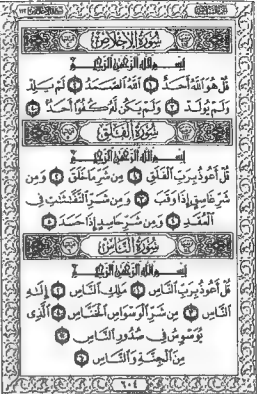 سُورَةُ الإِخْلَاصِ
بِسْمِ اللَّهِ الرَّحْمَٰنِ الرَّحِيمِ
قُلْ هُوَ اللَّهُ أَحَدٌ ١ اللَّهُ الصَّمَدُ ٢ لَمْ يَلِدْ
وَلَمْ يُولَدْ ٣ وَلَمْ يَكُن لَّهُ كُفُوًا أَحَدٌ ٤
سُورَةُ الفَلَقِ
بِسْمِ اللَّهِ الرَّحْمَٰنِ الرَّحِيمِ
قُلْ أَعُوذُ بِرَبِّ الْفَلَقِ ١ مِن شَرِّ مَا خَلَقَ ٢ وَمِن
شَرِّ غَاسِقٍ إِذَا وَقَبَ ٣ وَمِن شَرِّ النَّفَّٰثَٰتِ فِي
الْعُقَدِ ٤ وَمِن شَرِّ حَاسِدٍ إِذَا حَسَدَ ٥
سُورَةُ النَّاسِ
بِسْمِ اللَّهِ الرَّحْمَٰنِ الرَّحِيمِ
قُلْ أَعُوذُ بِرَبِّ النَّاسِ ١ مَلِكِ النَّاسِ ٢ إِلَٰهِ
النَّاسِ ٣ مِن شَرِّ الْوَسْوَاسِ الْخَنَّاسِ ٤ الَّذِي
يُوَسْوِسُ فِي صُدُورِ النَّاسِ ٥
مِنَ الْجِنَّةِ وَالنَّاسِ ٦
٦٠٤